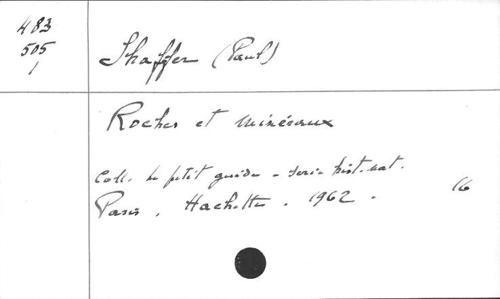 483
505
1
Shaffer (Paul)
Roches et minéraux
Coll. Le petit guide - serie hist. nat.
Paris, Hachette. 1962.
16